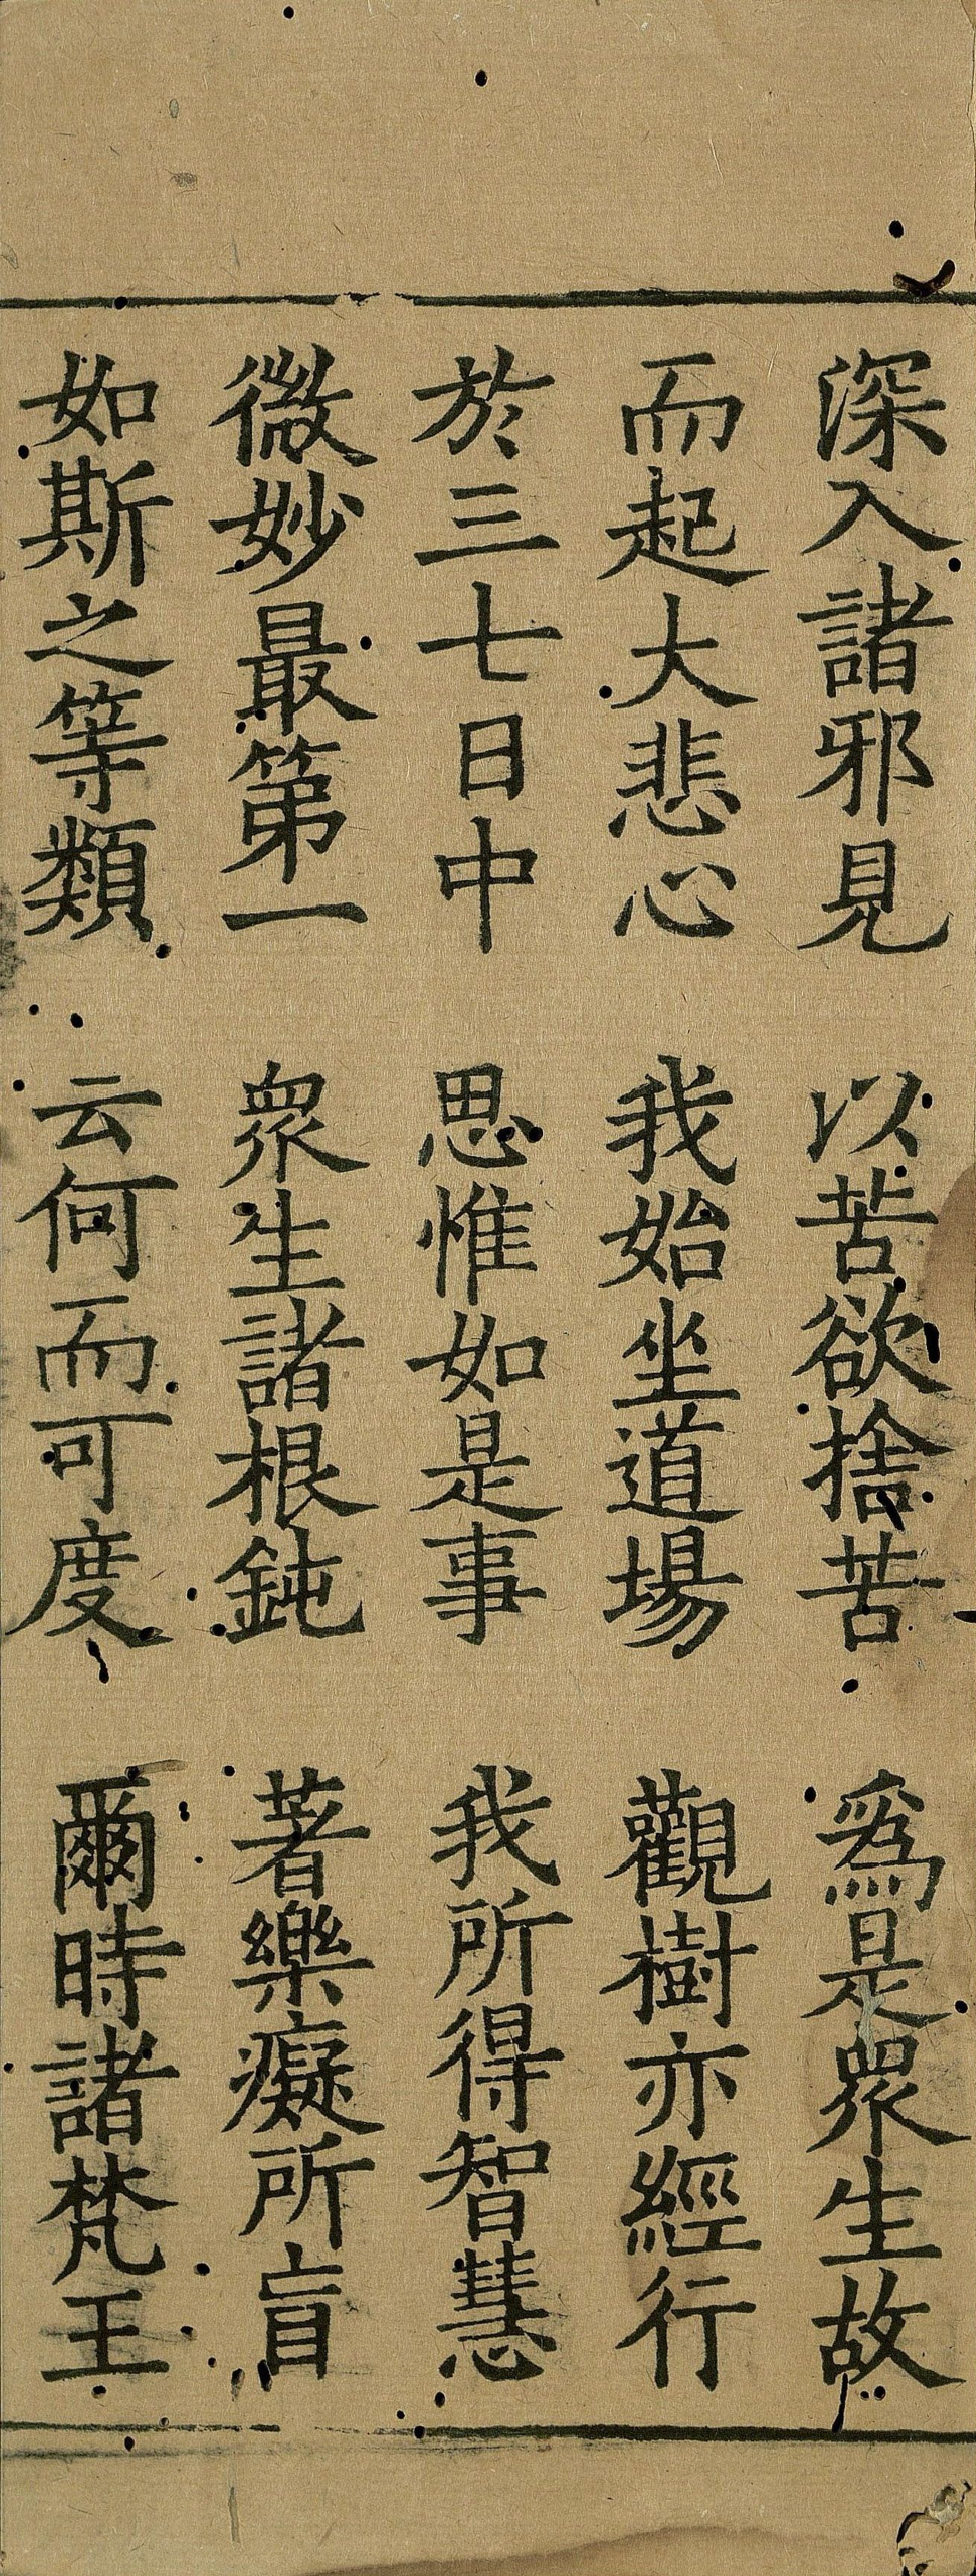 深入諸邪見　以苦欲捨苦　爲是衆生故
而起大悲心　我始坐道場　觀樹亦經行
於三七日中　思惟如是事　我所得智慧
微妙最第一　衆生諸根鈍　著樂癡所盲
如斯之等類　云何而可度　爾時諸梵王